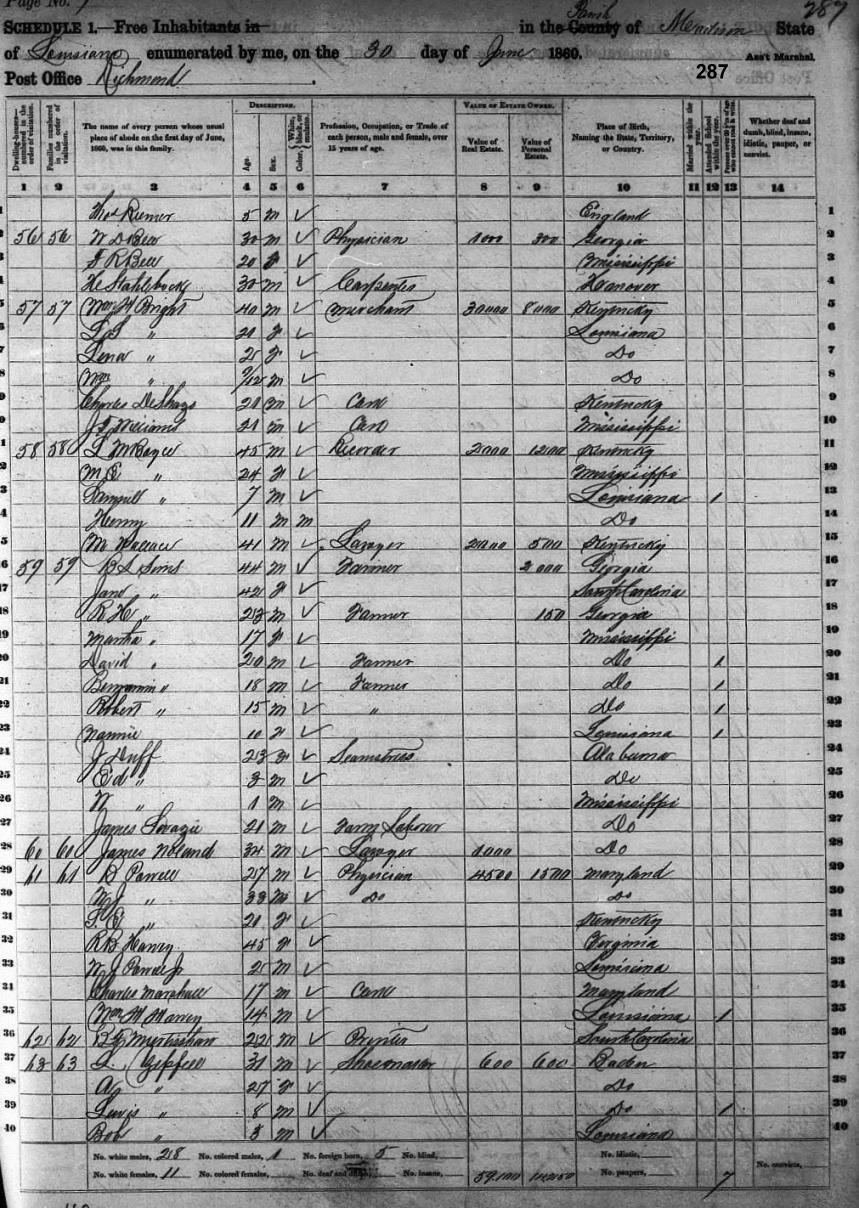 Page No. 7
287
SCHEDULE 1.—Free Inhabitants in in the County Parish of Madison State
of Louisiana enumerated by me, on the 30 day of June 1860. Ass't Marshal.
287
Post Office Richmond.
DESCRIPTION. VALUE OF ESTATE OWNED.
Dwelling-houses—numbered in the order of visitation. Families numbered in the order of visitation. The name of every person whose usual place of abode on the first day of June, 1860, was in this family. Age. Sex. Color, White, black, or mulatto. Profession, Occupation, or Trade of each person, male and female, over 15 years of age. Value of Real Estate. Value of Personal Estate. Place of Birth, Naming the State, Territory, or Country. Married within the year. Attended School within the year. Persons over 20 y'rs of age who cannot read & write. Whether deaf and dumb, blind, insane, idiotic, pauper, or convict.
1 2 3 4 5 6 7 8 9 10 11 12 13 14
1 Thos 5 m ✓ England 1
2 56 56 W D Bew 30 m ✓ Physician 1000 300 Georgia 2
3 F R Bew 20 f ✓ Mississippi 3
4 30 m ✓ Carpenter Hanover 4
5 57 57 Wm H Bright 40 m ✓ Merchant 30000 8000 Kentucky 5
6 " 21 f ✓ Louisiana 6
7 Lena " 2 f ✓ Do 7
8 Wm " 9/12 m ✓ Do 8
9 Charles DeShazo 20 m ✓ Kentucky 9
10 Williams 21 m ✓ Mississippi 10
11 58 58 45 m ✓ Recorder 2000 1200 Kentucky 11
12 M E " 24 f ✓ Mississippi 12
13 Samuel " 7 m ✓ Louisiana 1 13
14 Henry 11 m m Do 14
15 M Wallace 41 m ✓ Lawyer 500 Kentucky 15
16 59 59 B L Sims 44 m ✓ Farmer 2000 Georgia 16
17 Jane " 42 f ✓ South Carolina 17
18 R H " 23 m ✓ Farmer 150 Georgia 18
19 Martha " 17 f ✓ Mississippi 19
20 David " 20 m ✓ Farmer Do 1 20
21 Benjamin " 18 m ✓ Farmer Do 1 21
22 Robert " 15 m ✓ " Do 1 22
23 Nannie 10 f ✓ Louisiana 1 23
24 J Duff 23 f ✓ Seamstress Alabama 24
25 Ed " 3 m ✓ Do 25
26 W " 1 m ✓ Mississippi 26
27 James 21 m ✓ Farm Laborer Do 27
28 60 60 James Noland 34 m ✓ Lawyer Do 28
29 61 61 B Parrell 27 m ✓ Physician 4500 1500 Maryland 29
30 W J " 33 m ✓ Do Do 30
31 " 21 f ✓ Kentucky 31
32 R B Harvy 45 f ✓ Virginia 32
33 W J Jr 2 m ✓ Louisiana 33
34 Charles Marshall 17 m ✓ Maryland 34
35 Wm H Harvey 14 m ✓ Louisiana 1 35
36 62 62 22 m ✓ Printer South Carolina 36
37 63 63 L 31 m ✓ Shoemaker 600 600 Baden 37
38 " 27 f ✓ Do 38
39 Lewis " 8 m ✓ Do 1 39
40 Bob " 3 m ✓ Louisiana 40
No. white males, 28 No. colored males, 1 No. foreign born, 5 No. blind, No. idiotic,
No. white females, 11 No. colored females, No. deaf and dumb, No. insane, No. paupers, 7 No. convicts,